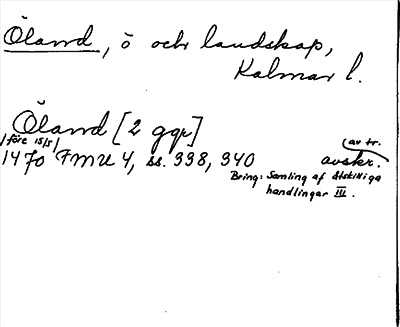 Öland, ö och landskap,
Kalmar l.
Öland [2 ggr]
/före 15/5/ (av tr.
1470 FMU 4, ss. 338, 340 avskr.
Bring: Samling af åtskilliga
handlingar III.